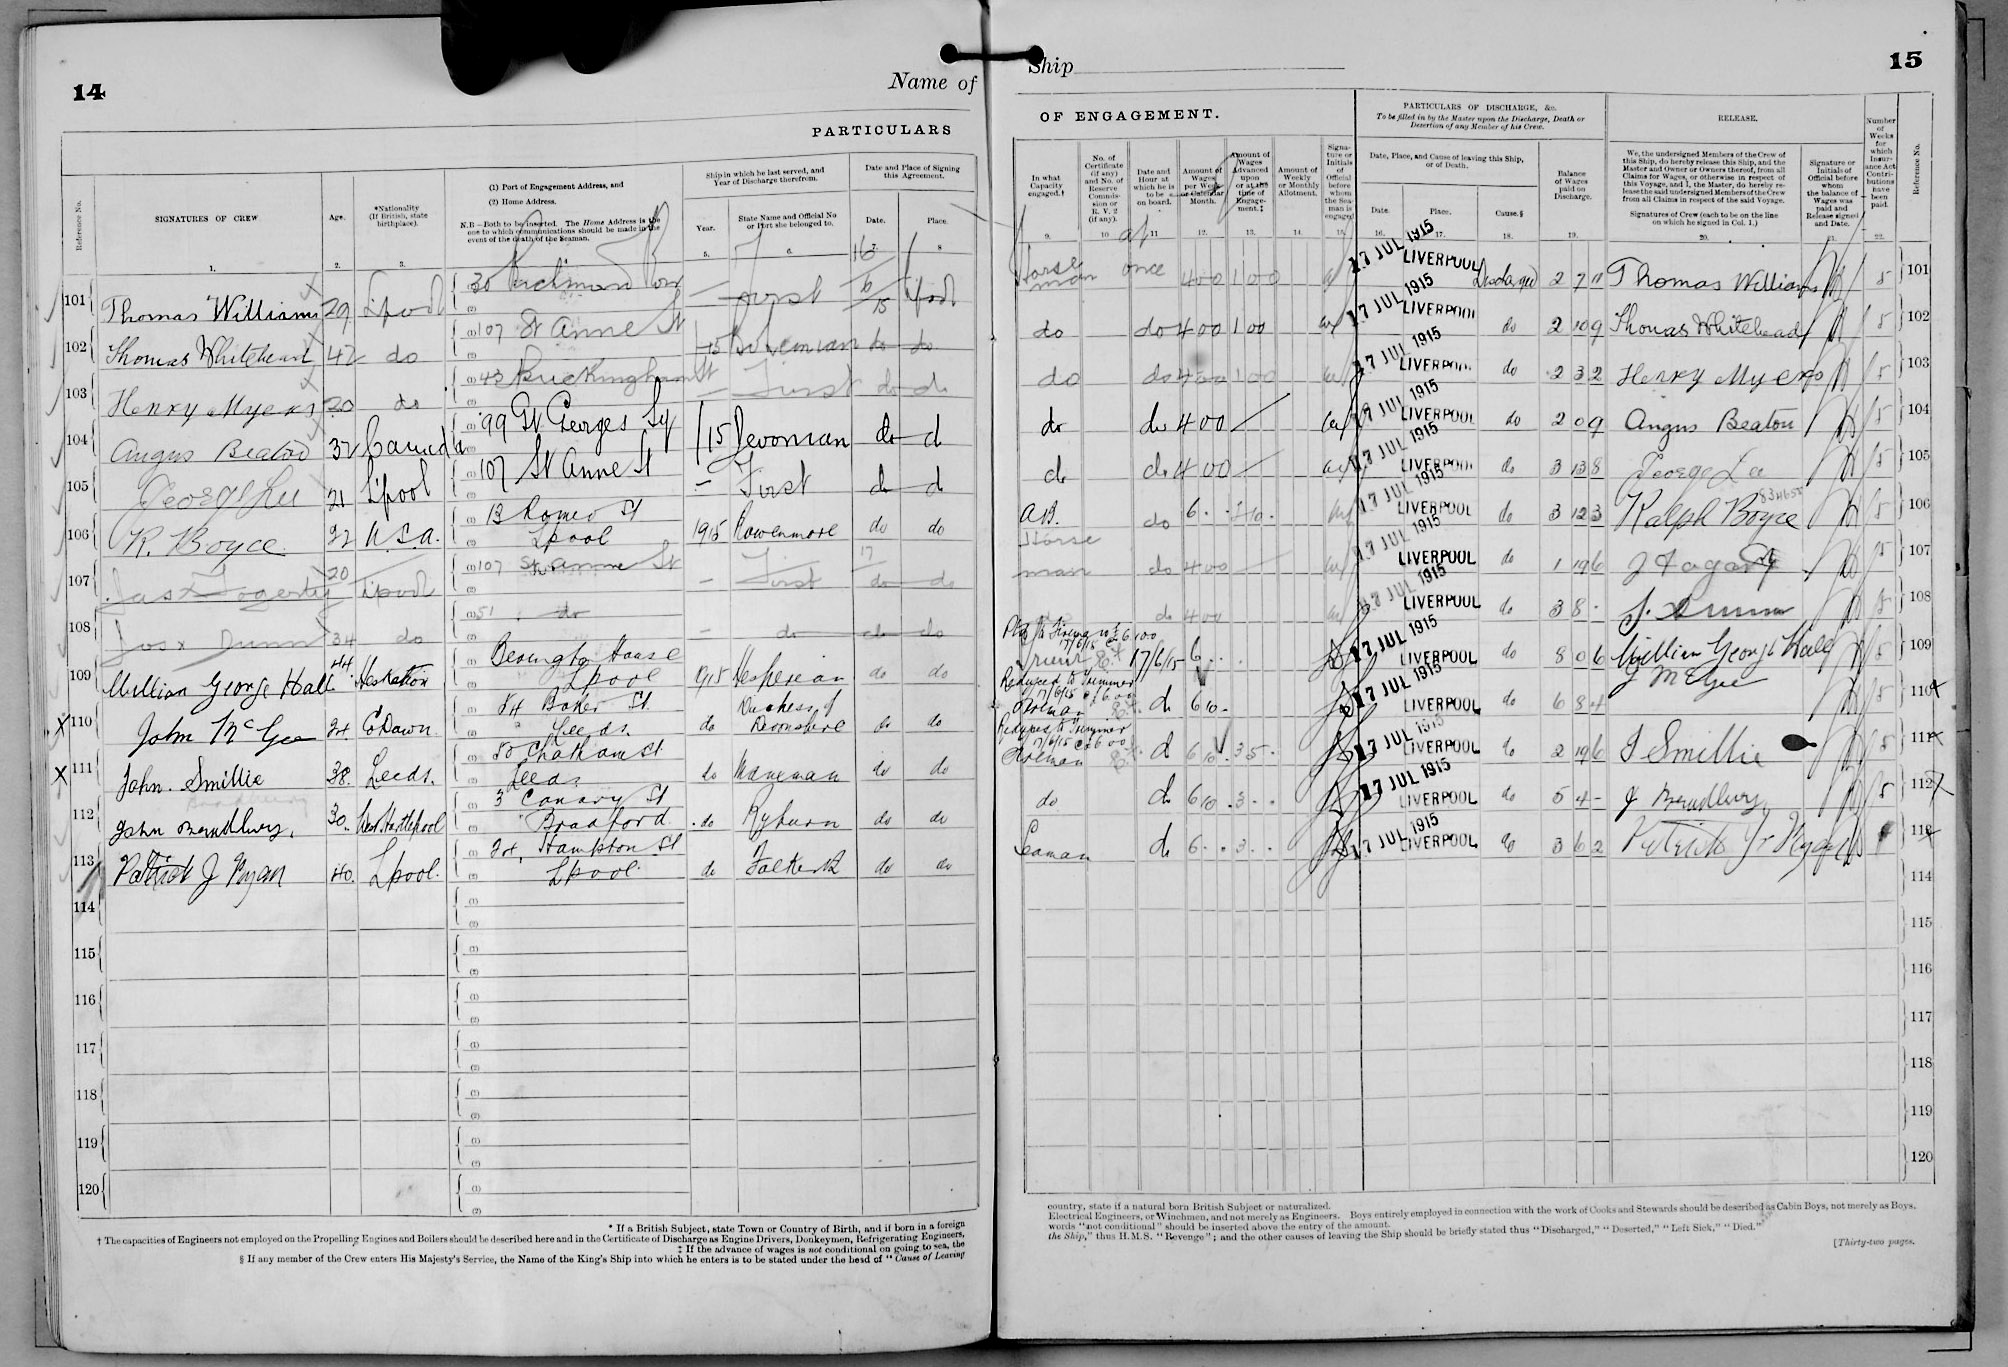 14
Name of
PARTICULARS
Reference No.
SIGNATURES OF CREW
1.
Age.
2.
*Nationality
(If British, state
birthplace).
3.
(1) Port of Engagement Address, and
(2) Home Address.
N.B—Both to be inserted. The Home Address is the
one to which communications should be made in the
event of the death of the Seaman.
Ship in which he last served, and
Year of Discharge therefrom.
Year.
5.
State Name and Official No
or Port she belonged to.
6.
Date and Place of Signing
this Agreement.
Date.
Place.
8
101 Thomas Williams 29 L'pool 30 Richmond Row — First 16/6/15 L'pool
102 Thomas Whitehead 42 do 107 St Anne St 15 do do
103 Henry Myers 20 do 43 Buckingham St — First do do
104 Angus Beaton 32 Canada 99 St Georges Sq 15 Devonian do d
105 George Lee 21 L'pool 107 St Anne St — First do d
106 R. Boyce 22 U.S.A. 13 Romeo St
Lpool 1915 Rowenmore do do
107 Jas x Fogerty 20 L'pool 107 St Anne St — First 17 do do
108 Jos x Dunn 34 do 51 do — do do do
109 William George Hall 44 Hesketh Bevington House
Lpool 1915 Hesperian do do
110 John McGee 24 Co Down 84 Baker St
Leeds do Duchess of
Devonshire do do
111 John Smillie 38 Leeds. Chatham St
Leeds do do do
112 John Bradbury. 30 West Hartlepool 3 Canary St
Bradford do Ryburn do do
113 Patrick J Ryan 40. Lpool. 24, Hampton St
Lpool. do Falkirk do do
114
115
116
117
118
119
120
* If a British Subject, state Town or Country of Birth, and if born in a foreign
† The capacities of Engineers not employed on the Propelling Engines and Boilers should be described here and in the Certificate of Discharge as Engine Drivers, Donkeymen, Refrigerating Engineers,
‡ If the advance of wages is not conditional on going to sea, the
§ If any member of the Crew enters His Majesty's Service, the Name of the King's Ship into which he enters is to be stated under the head of "Cause of Leaving
Ship
15
OF ENGAGEMENT.
PARTICULARS OF DISCHARGE, &c.
To be filled in by the Master upon the Discharge, Death or
Desertion of any Member of his Crew.
RELEASE.
Number
of
Weeks
for
which
Insur-
ance Act
Contri-
butions
have
been
paid.
22.
Reference No.
In what
Capacity
engaged.†
9.
No. of
Certificate
(if any)
and No. of
Reserve
Commis-
sion or
R. V. 2
(if any).
10
Date and
Hour at
which he is
to be
on board.
11
Amount of
Wages
per Week
or Calendar
Month.
12.
Amount of
Wages
Advanced
upon
or at the
time of
Engage-
ment.‡
13.
Amount of
Weekly
or Monthly
Allotment.
14.
Signa-
ture or
Initials
of
Official
before
whom
the Sea-
man is
engaged
15.
Date, Place, and Cause of leaving this Ship,
or of Death.
Date.
16.
Place.
17.
Cause.§
18.
Balance
of Wages
paid on
Discharge.
19.
We, the undersigned Members of the Crew of
this Ship, do hereby release this Ship, and the
Master and Owner or Owners thereof, from all
Claims for Wages, or otherwise in respect of
this Voyage, and I, the Master, do hereby re-
lease the said undersigned Members of the Crew
from all Claims in respect of the said Voyage.
Signatures of Crew (each to be on the line
on which he signed in Col. 1.)
20.
Signature or
Initials of
Official before
whom
the balance of
Wages was
paid and
Release signed
and Date.
21.
Horse
man at once 4 0 0 1 0 0 17 JUL 1915 LIVERPOOL Discharged 2 7 11 Thomas Williams 5 101
do do 4 0 0 1 0 0 17 JUL 1915 LIVERPOOL do 2 10 9 Thomas Whitehead 5 102
do do 4 0 0 1 0 0 17 JUL 1915 LIVERPOOL do 2 3 2 Henry Myers 5 103
do do 4 0 0 17 JUL 1915 LIVERPOOL do 2 0 9 Angus Beaton 5 104
do do 4 0 0 17 JUL 1915 LIVERPOOL do 3 13 8 George Lee 5 105
A.B. do 6 . . 17 JUL 1915 LIVERPOOL do 3 12 3 Ralph Boyce 5 106
Horse
man do 4 0 0 17 JUL 1915 LIVERPOOL do 1 19 6 J Fogarty 5 107
do 4 0 0 17 JUL 1915 LIVERPOOL do 3 8 - J. Dunn 5 108
17/6/15
Trimmer 17/6/15 6 . . 17 JUL 1915 LIVERPOOL do 8 0 6 William George Hall 5 109
Reduced to Trimmer
17/6/15 @ 6.00
Fireman d 6 10 - 17 JUL 1915 LIVERPOOL do 6 8 4 J McGee 5 110
Reduced to Trimmer
17/6/15 @ 6 00
Fireman d 6 10 . 3 5 - 17 JUL 1915 LIVERPOOL do 2 19 6 J Smillie 5 111
do d 6 10 . 3 - - 17 JUL 1915 LIVERPOOL do 5 4 - J Bradbury. 5 112
Seaman d 6 . . 3 . . 17 JUL 1915 LIVERPOOL do 3 6 2 Patrick J Ryan 113
114
115
116
117
118
119
120
country, state if a natural born British Subject or naturalized.
Electrical Engineers, or Winchmen, and not merely as Engineers. Boys entirely employed in connection with the work of Cooks and Stewards should be described as Cabin Boys, not merely as Boys.
words "not conditional" should be inserted above the entry of the amount.
the Ship," thus H.M.S. "Revenge"; and the other causes of leaving the Ship should be briefly stated thus "Discharged," "Deserted," "Left Sick," "Died."
[Thirty-two pages.